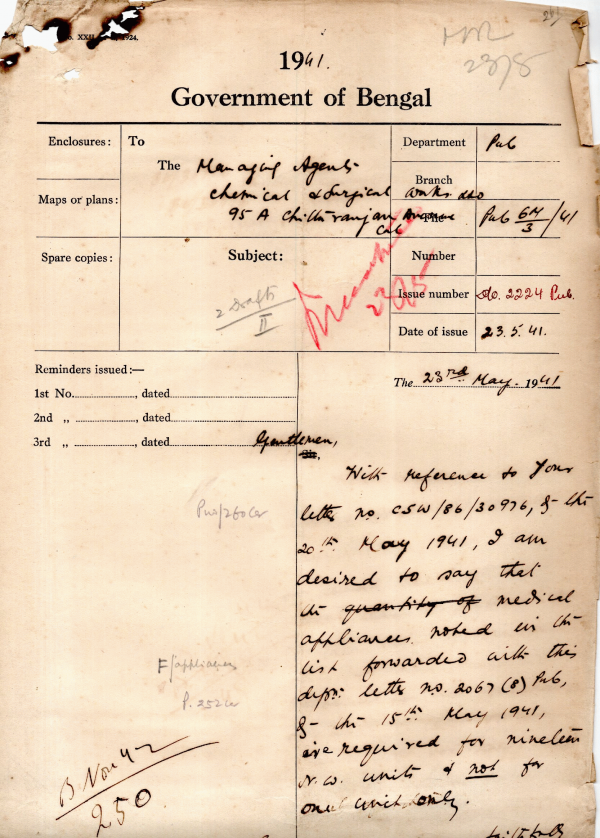 1924.
1941.
Government of Bengal
Enclosures:
To
The Managing Agents
Chemical & Surgical Works Ltd
95 A Chittaranjan Avenue
Cal
Maps or plans:
Spare copies:
Subject:
2 Drafts
II
Department Pub
Branch
File Pub 6M/3/41
Number
Issue number No. 2224 Pub.
Date of issue 23.5.41.
Reminders issued:—
1st No. , dated
2nd „ , dated
3rd „ , dated
The 23rd May. 1941
Gentlemen,
With reference to your
letter no. CSW/86/30976, of the
20th May 1941, I am
desired to say that
the quantity of medical
appliances noted in the
list forwarded with this
dept. letter no. 2067 (8) Pub,
of the 15th May 1941,
are required for nineteen
units & not for
one unit only.
F/appliances
P. 252
B Nov 42
250